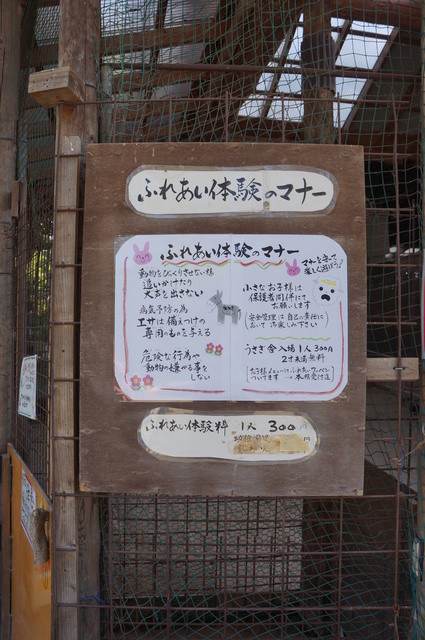 ふれあい体験のマナー
ふれあい体験のマナー
マナーを守って
楽しく遊ぼう♪
動物をびっくりさせない様
追いかけたり
大声を出さない
病気予防の為
エサは備えつけの
専用のものを与える
危険な行為や
動物の嫌がる事を
しない
小さなお子様は
保護者同伴にて
お願いします
安全管理は自己の責任に
おいてお楽しみ下さい
うさぎ舎入場1人300円
2才未満無料
ついてます → 本館受付迄
ふれあい体験料 1人 300円